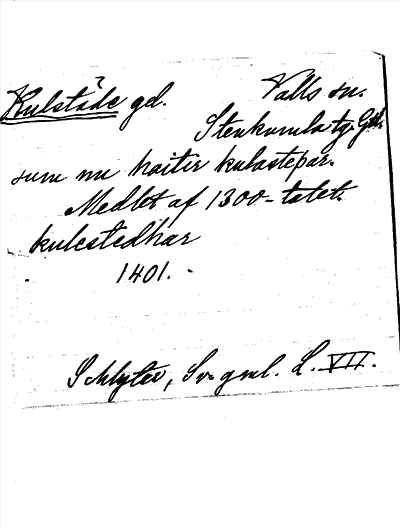 Kulstäde gd. Valls sn.
Stenkumla tg. Gtl.
sum nu haitir kulastepar.
Medlet af 1300-talet.
kulcstedhar
1401.
Schlyter, Sv. gml. L. VII.